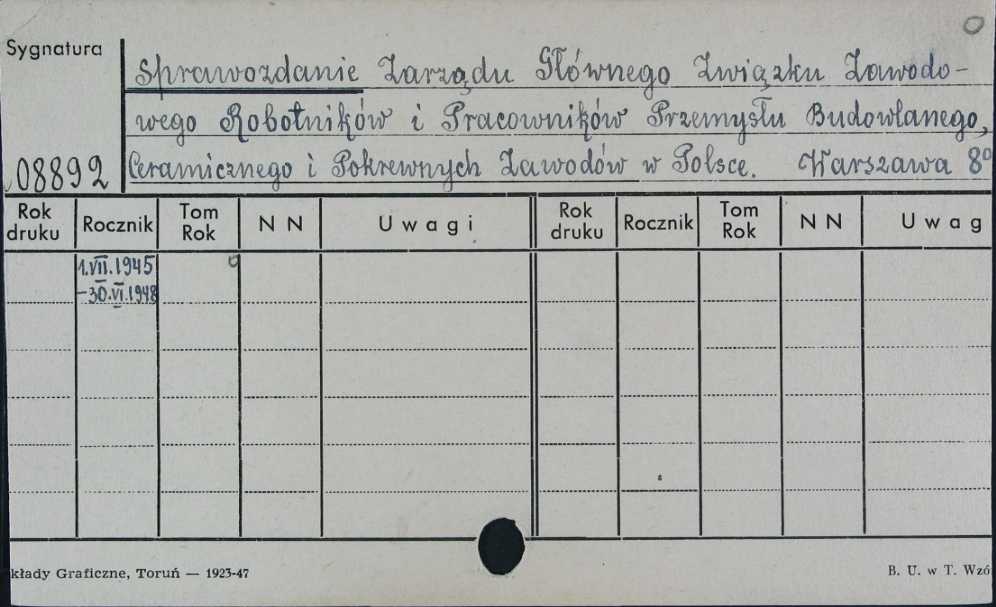 Sygnatura
Sprawozdanie Zarządu Głównego Związku Zawodo-
wego Robotników i Pracowników Przemysłu Budowlanego,
08892 Ceramicznego i Pokrewnych Zawodów w Polsce. Warszawa 8º
Rok druku Rocznik Tom Rok N N Uwagi Rok druku Rocznik Tom Rok N N Uwag
1.VII.1945
-30.VI.1948
kłady Graficzne, Toruń — 1923-47 B. U. w T. Wzó